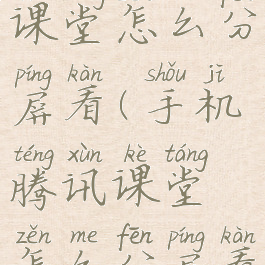 课堂怎么分
píng kàn shǒu jī
屏看(手机
téng xùn kè táng
腾讯课堂
zěn me fēn píng kàn
怎么分屏看